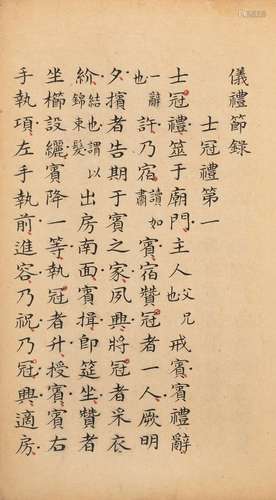 儀禮節錄
士冠禮第一
士冠禮筮于廟門主人父兄也戒賓賓禮辭
一辭也許乃宿讀如肅賓宿贊冠者一人厥明
夕擯者告期于賓之家夙興將冠者采衣
紒結也謂以錦束髮出房南面賓揖即筵坐贊者
坐櫛設纚賓降一等執冠者升授賓賓右
手執項左手執前進容乃祝乃冠興適房